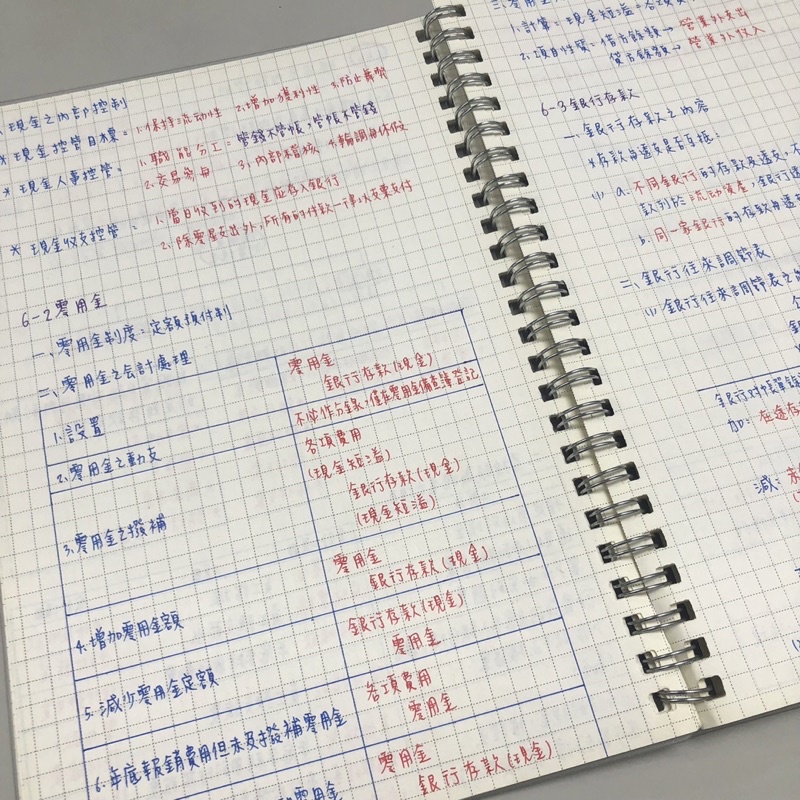 現金之內部控制
* 現金控管目標：1.保持流動性 2.增加獲利性 3.防止舞弊
* 現金人事控管：1.職能分工：管錢不管帳，管帳不管錢
2.交易分 3.內部稽核 4.輪調與休假
* 現金收支控管：1.當日收到的現金應存入銀行
2.除零星支出外，所有的付款一律以支票支付
6-2零用金
一、零用金制度：定額預付制
二、零用金之會計處理
1.設置
零用金
銀行存款(現金)
2.零用金之動支
不必作分錄，僅在零用金備查簿登記
3.零用金之撥補
各項費用
(現金短溢)
銀行存款(現金)
(現金短溢)
4.增加零用金額
零用金
銀行存款(現金)
5.減少零用金定額
銀行存款(現金)
零用金
6.年底報銷費用但未及撥補零用金
各項費用
零用金
零用金
零用金
銀行存款(現金)
1.計算：現金短溢=各項
2.項目性質：借方餘額→營業外支出
貸方餘額→營業外收入
6-3銀行存款
一、銀行存款之內容
*存款與透支是否互抵：
(1) a.不同銀行的存款及透支，不
款列於流動資產，銀行透
b.同一家銀行的存款與透
二、銀行往來調節表
(1)銀行往來調節表之
銀行對帳單餘
加：在途存
減：未